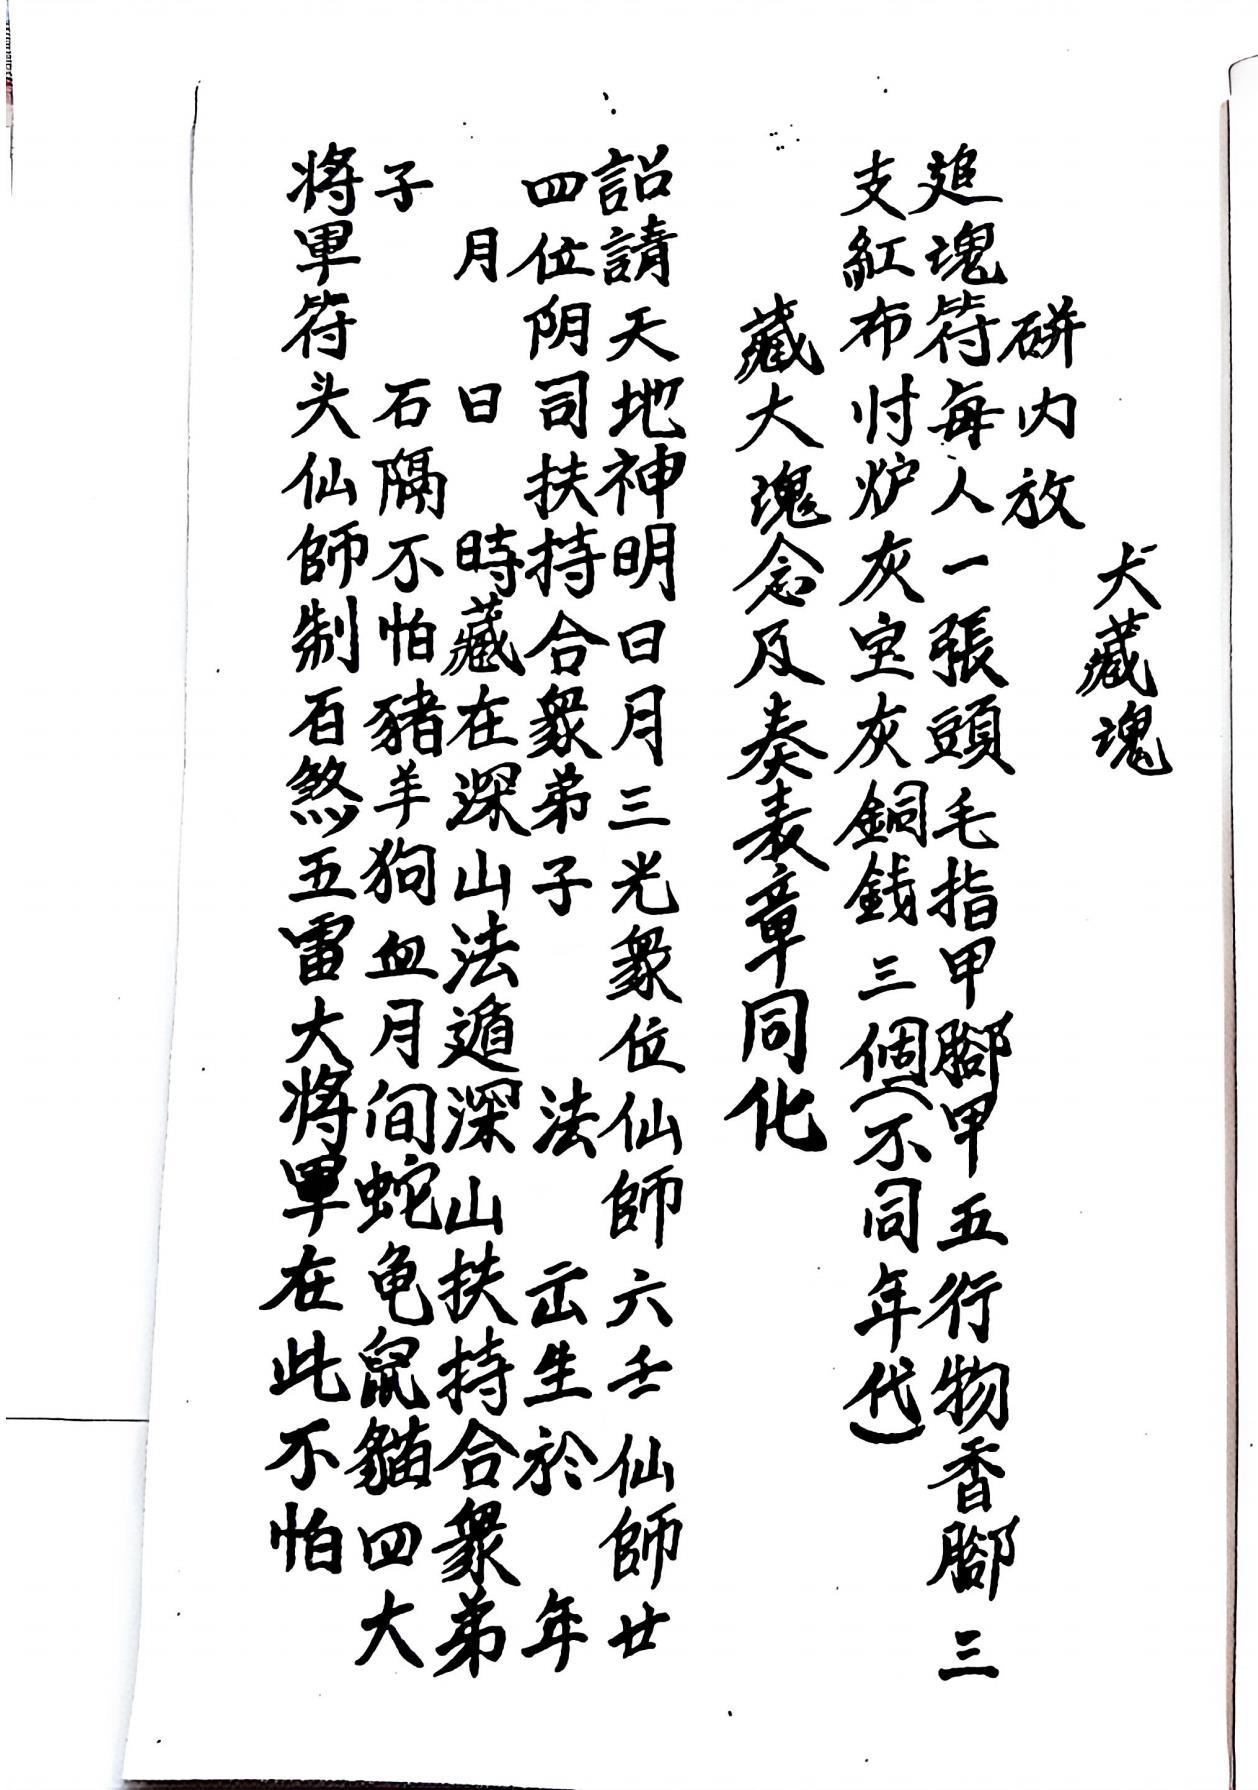 犬藏魂
硑内放
追魂符每人一張頭毛指甲腳甲五行物香腳三
支紅布付炉灰宝灰銅錢三個(不同年代)
藏大魂念及奏表章同化
詔請天地神明日月三光衆位仙師六壬仙師廿
四位阴司扶持合衆弟子 法 出生於 年
月 日 時藏在深山法遁深山扶持合衆弟
子 石隔不怕豬羊狗血月间蛇龟鼠貓四大
將軍符头仙師制石煞五雷大將軍在此不怕